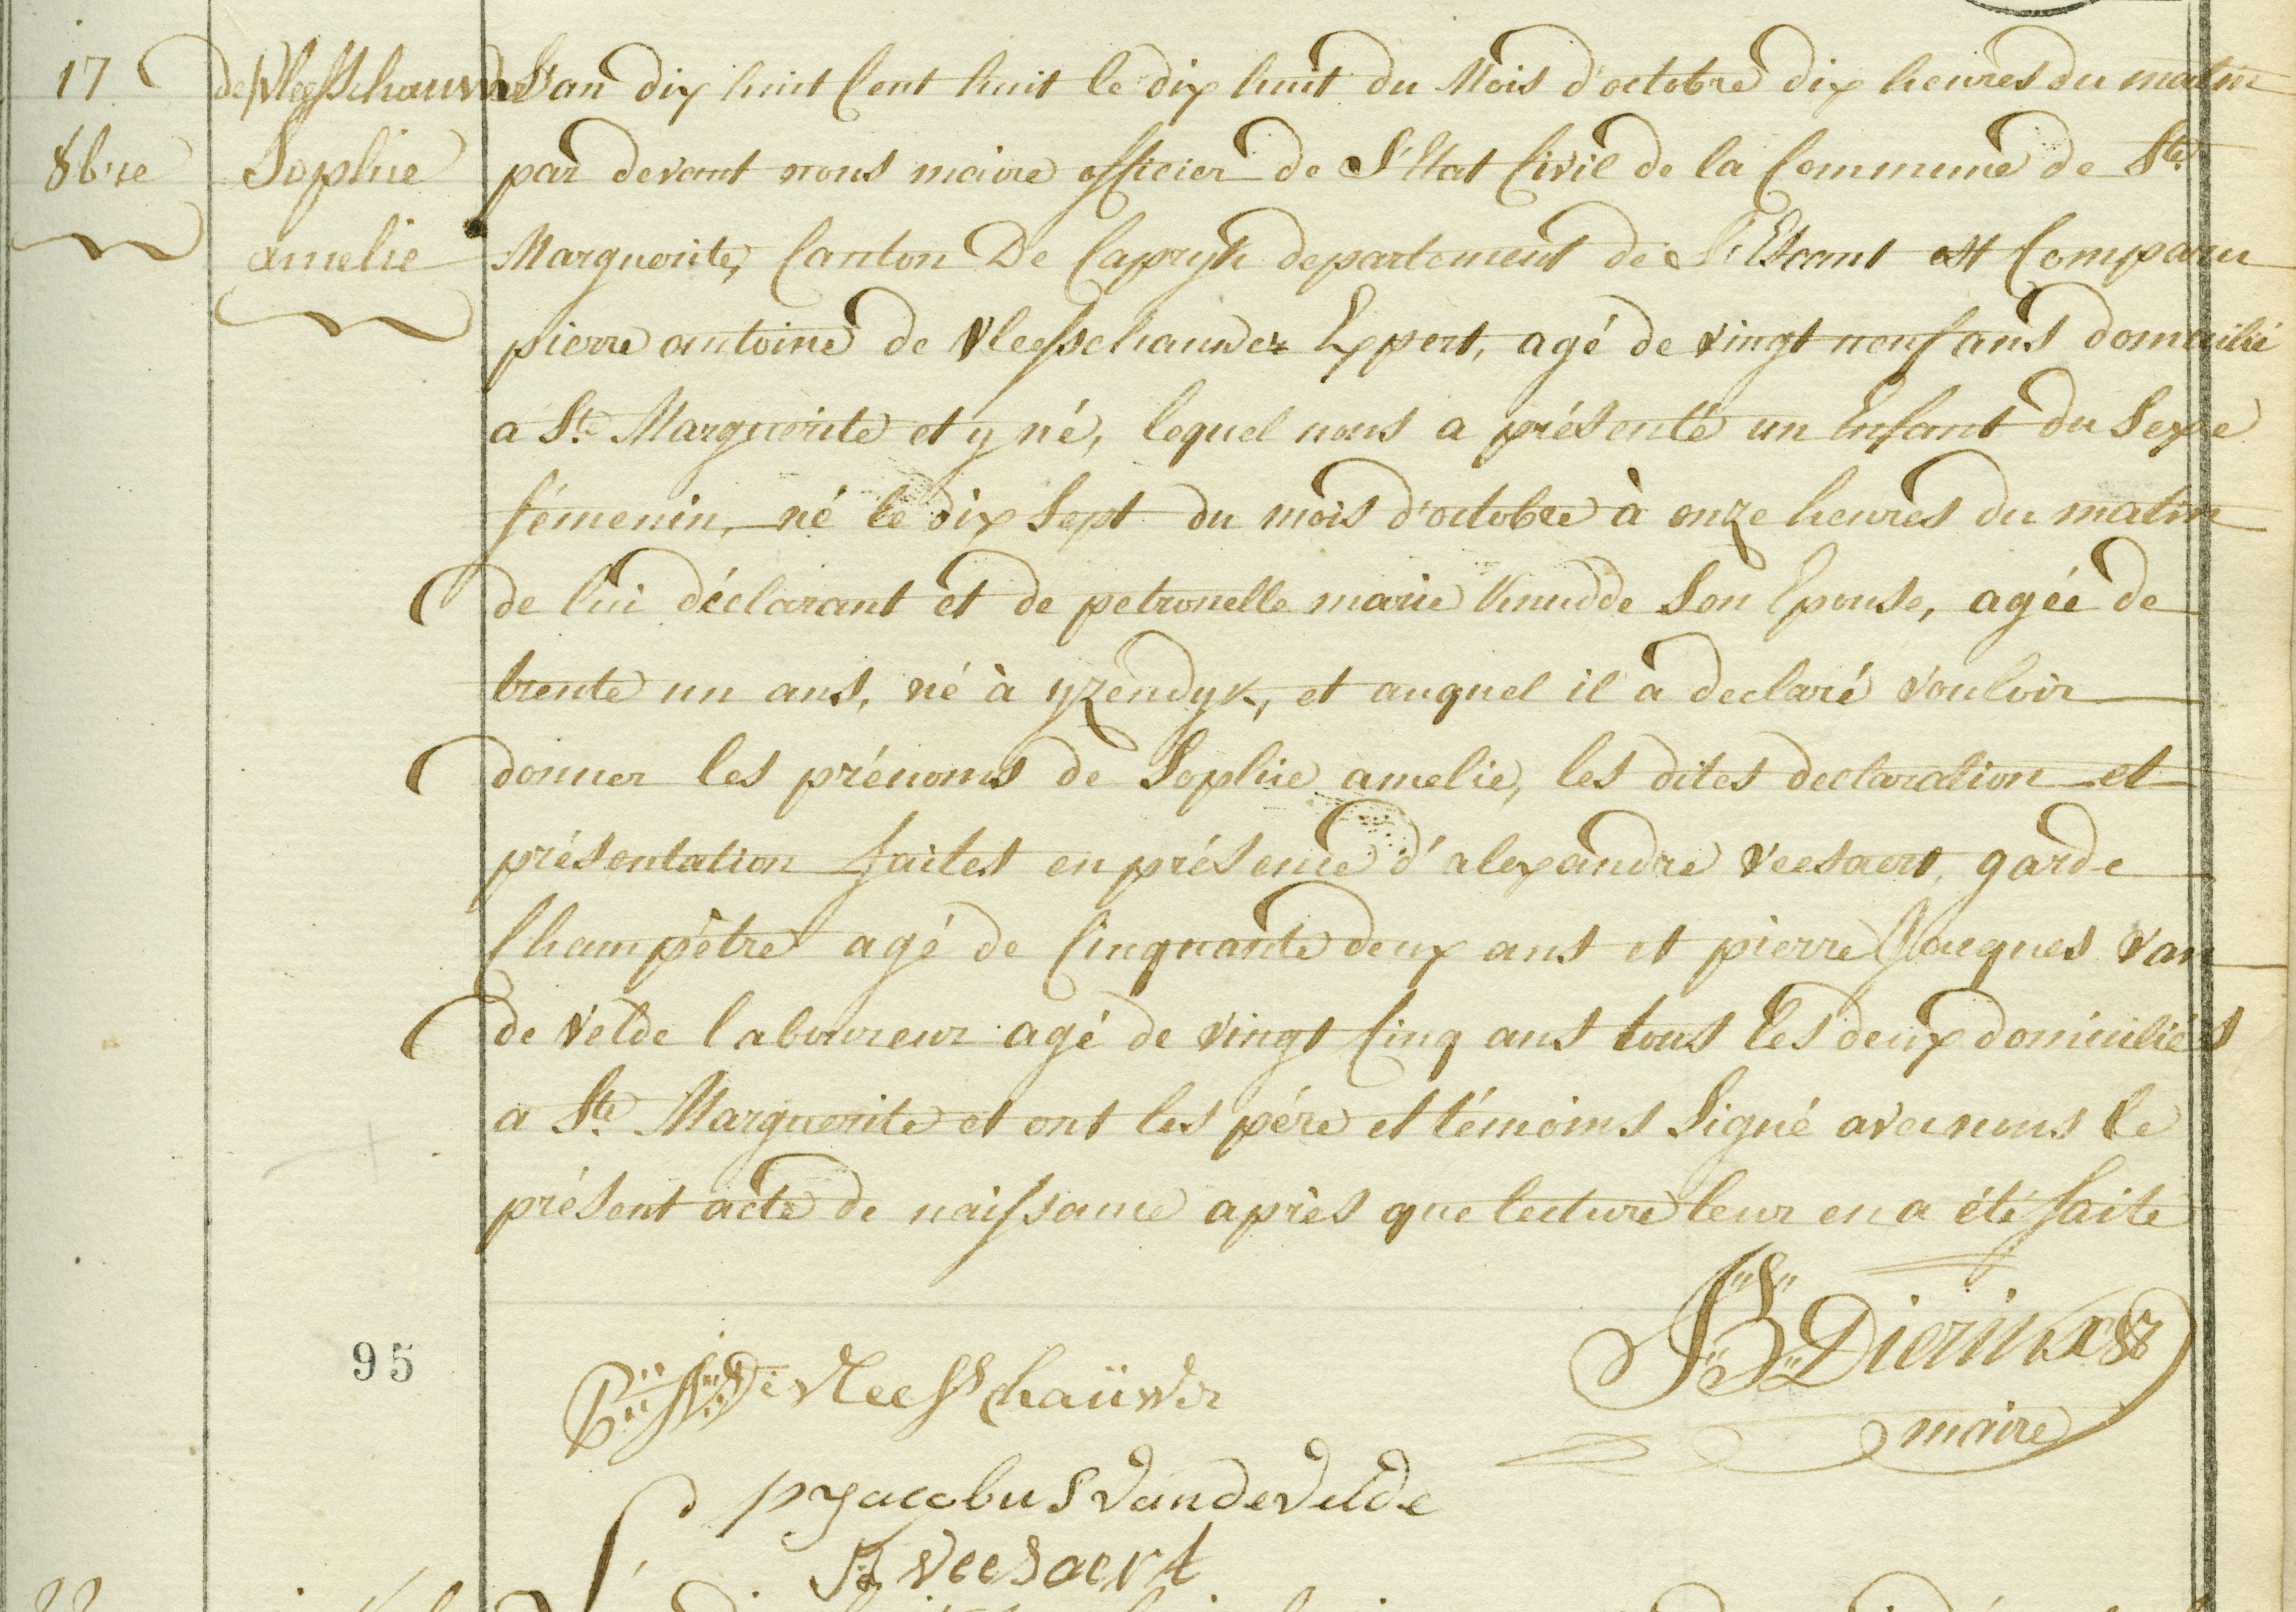 17
8bre
de Vleesschauwer
Sophie
amelie
L'an dix huit Cent huit le dix huit du Mois d'octobre dix heures du matin
par devant nous maire officier de L'Etat Civil de la Commune de Ste
Marguerite, Canton De Capryk departement de L'Escaut est Comparu
pierre antoine de Vleesschauwer Expert, agé de vingt neuf ans domicilié
a Ste Marguerite et y né, lequel nous a présenté un Enfant du Sexe
fémenin, né le dix Sept du mois d'octobre à onze heures du matin
de lui déclarant et de petronelle marie Knudde Son Epouse, agée de
trente un ans, né à yzendyk, et auquel il a declaré vouloir
donner les prénoms de Sophie amelie, les dites declaration et
présentation faites en présence d'alexandre Veesaert, garde
Champêtre agé de Cinquante deux ans et pierre Jacques Van
de Velde laboureur agé de vingt Cinq ans tous les deux domiciliés
a Ste Marguerite et ont les pére et témoins Signé avec nous le
présent acte de naissance après que lecture leur en a été faite
95
De Vleesschaüwer
JB Dierinckx
maire
p Jacobus Van de Velde
Veesaert